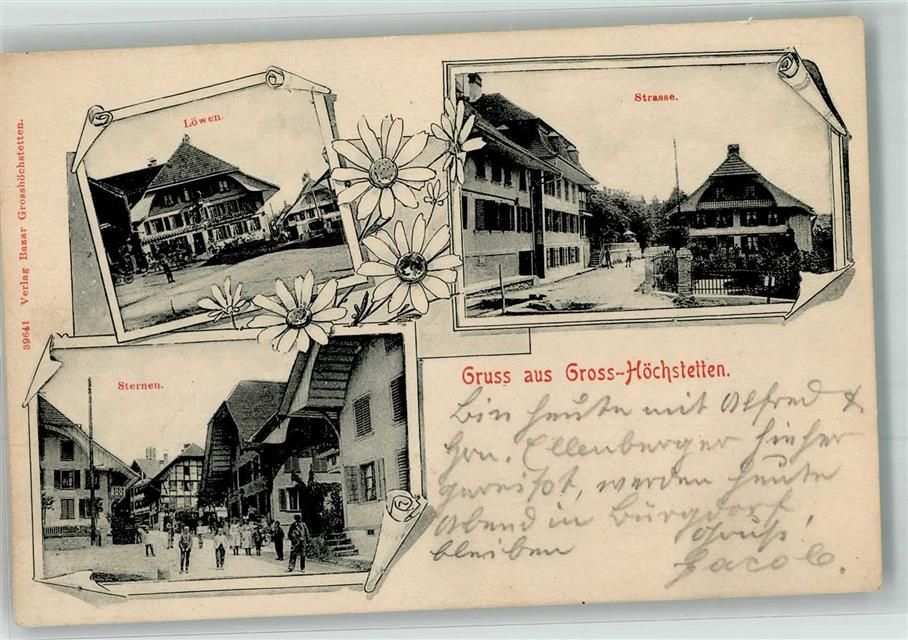 39641 Verlag Bazar Grosshöchstetten.
Löwen.
Strasse.
Sternen.
Gruss aus Gross-Höchstetten.
Bin heute mit Alfred &
Hrn. Ellenberger hieher
gereist, werden heute
Abend in Burgdorf
bleiben
Gruss
Jacob.